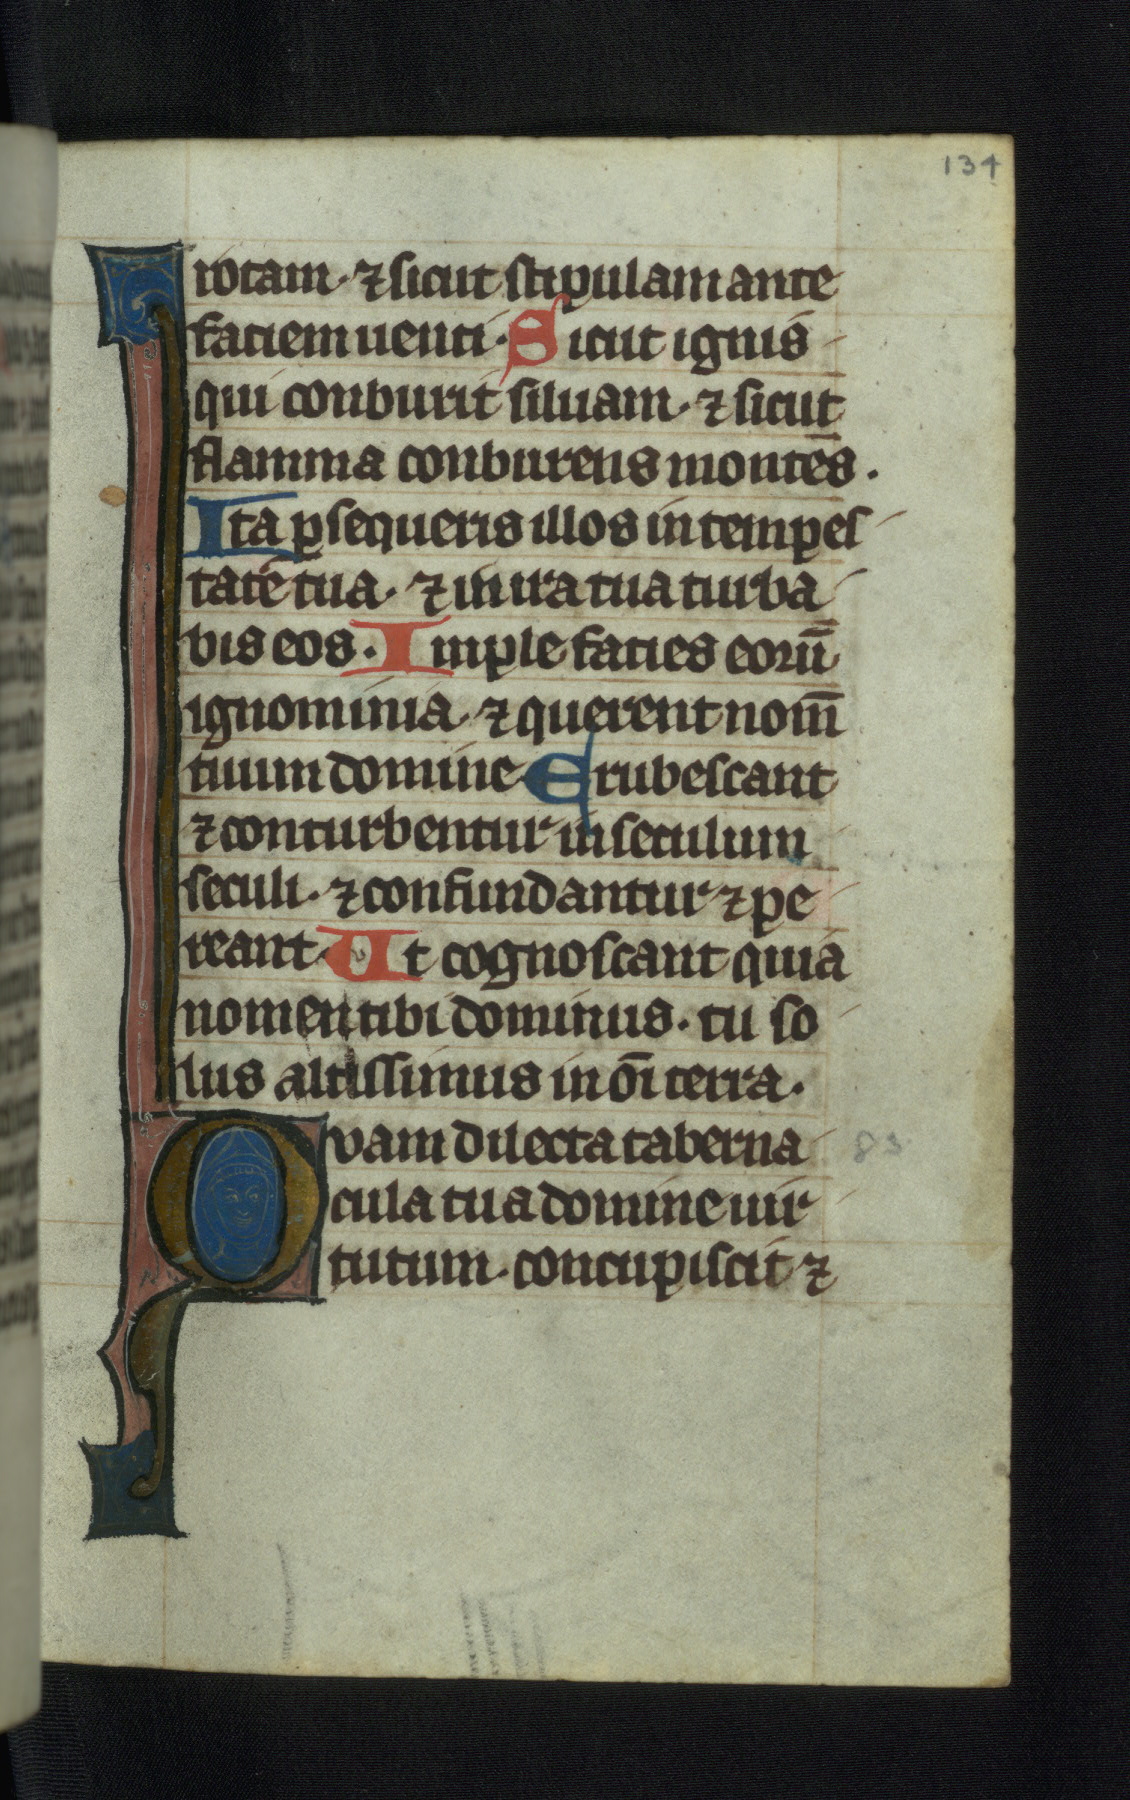 134
rotam · ⁊ sicut stipulam ante
faciem uenti · Sicut ignis
qui conburit siluam · ⁊ sicut
flamma conburens montes .
Ita psequeris illos in tempes
tate tua · ⁊ in ira tua turba
bis eos · Imple facies eorū
ignominia · ⁊ querent nom̄
tuum domine Erubescant
⁊ conturbentur in seculum
seculi · ⁊ confundantur ⁊ pe
reant · Ut cognoscant quia
nomen tibi dominus · tu so
lus altissimus in om̄i terra ·
Quam dilecta taberna
83
cula tua domine uir
tutum · concupiscit ⁊